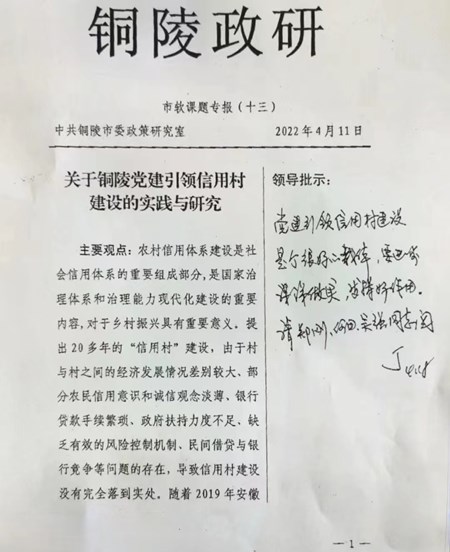 铜陵政研
市软课题专报（十三）
中共铜陵市委政策研究室 2022年4月11日
关于铜陵党建引领信用村
建设的实践与研究
主要观点：农村信用体系建设是社
会信用体系的重要组成部分，是国家治
理体系和治理能力现代化建设的重要
内容，对于乡村振兴具有重要意义。提
出20多年的“信用村”建设，由于村
与村之间的经济发展情况差别较大、部
分农民信用意识和诚信观念淡薄、银行
贷款手续繁琐、政府扶持力度不足、缺
乏有效的风险控制机制、民间借贷与银
行竞争等问题的存在，导致信用村建设
没有完全落到实处。随着2019年安徽
领导批示：
党建引领信用村建设
是个很好的载体，要进一步
深译做实，发挥好作用。
请
同志阅
—1—